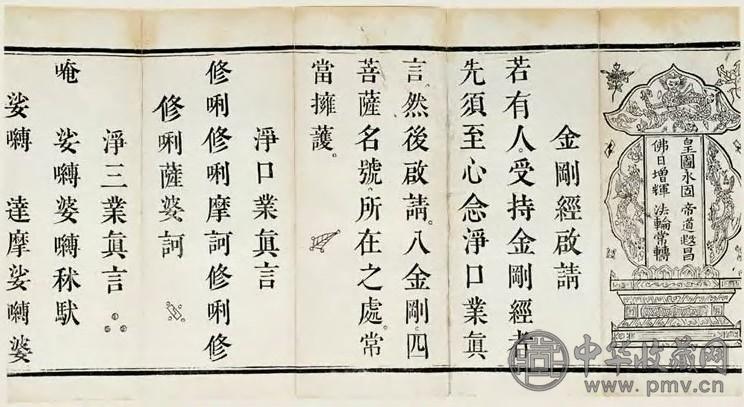 皇圖永固 帝道遐昌
佛日增輝 法輪常轉
金剛經啟請
若有人。受持金剛經者
先須至心念淨口業眞
言。然後啟請。八金剛。四
菩薩名號。所在之處。常
當擁護。
淨口業眞言
修唎修唎摩訶修唎修
修唎薩婆訶
淨三業眞言
唵 娑嚩婆嚩秫馱
娑嚩 達摩娑嚩婆
中华收藏网
www.pmv.cn